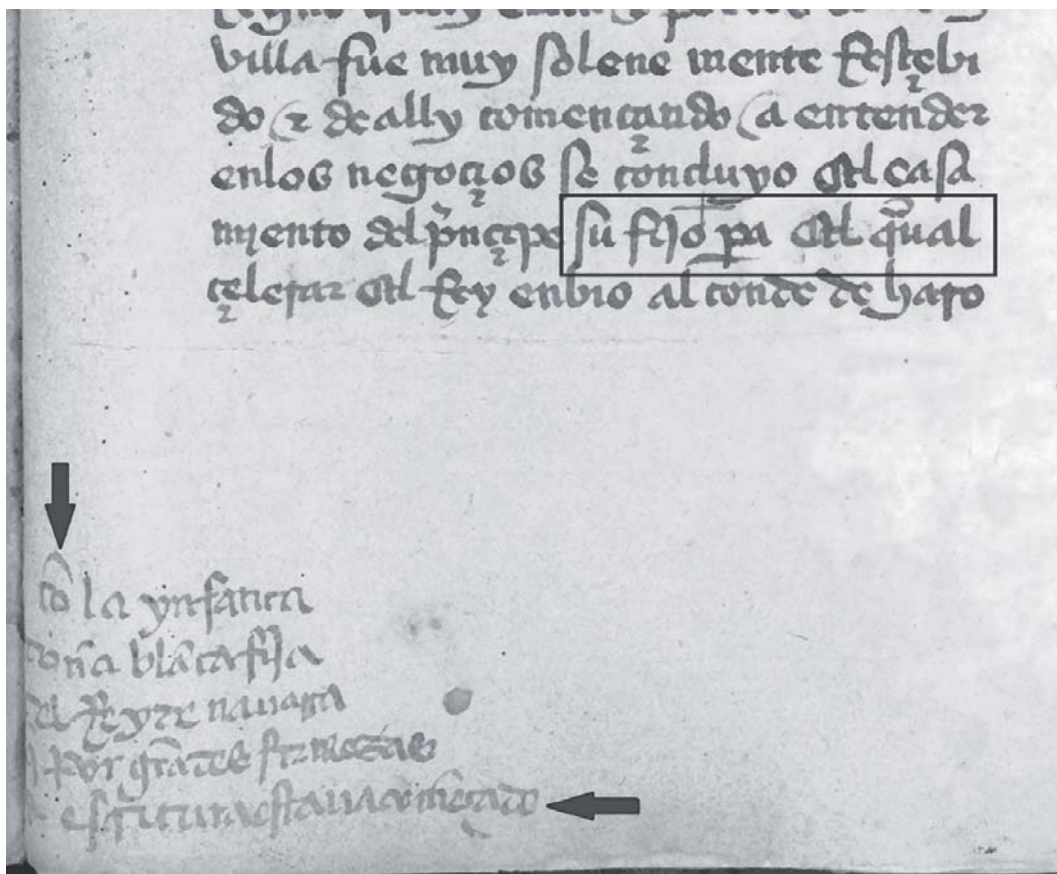 villa fue muy solene mente Resçebi
do (τ de ally començando (a entender
enlos negoçios se concluyo el casa
mjento del pⁱnçipe su fijo pa el qual
çelebrar el Rey enbio al conde de haro
cō la ynfanta
doña blāca fija
del Rey de nauarra
q̄ por grādes firmezas
τ escritura estaua comēçado